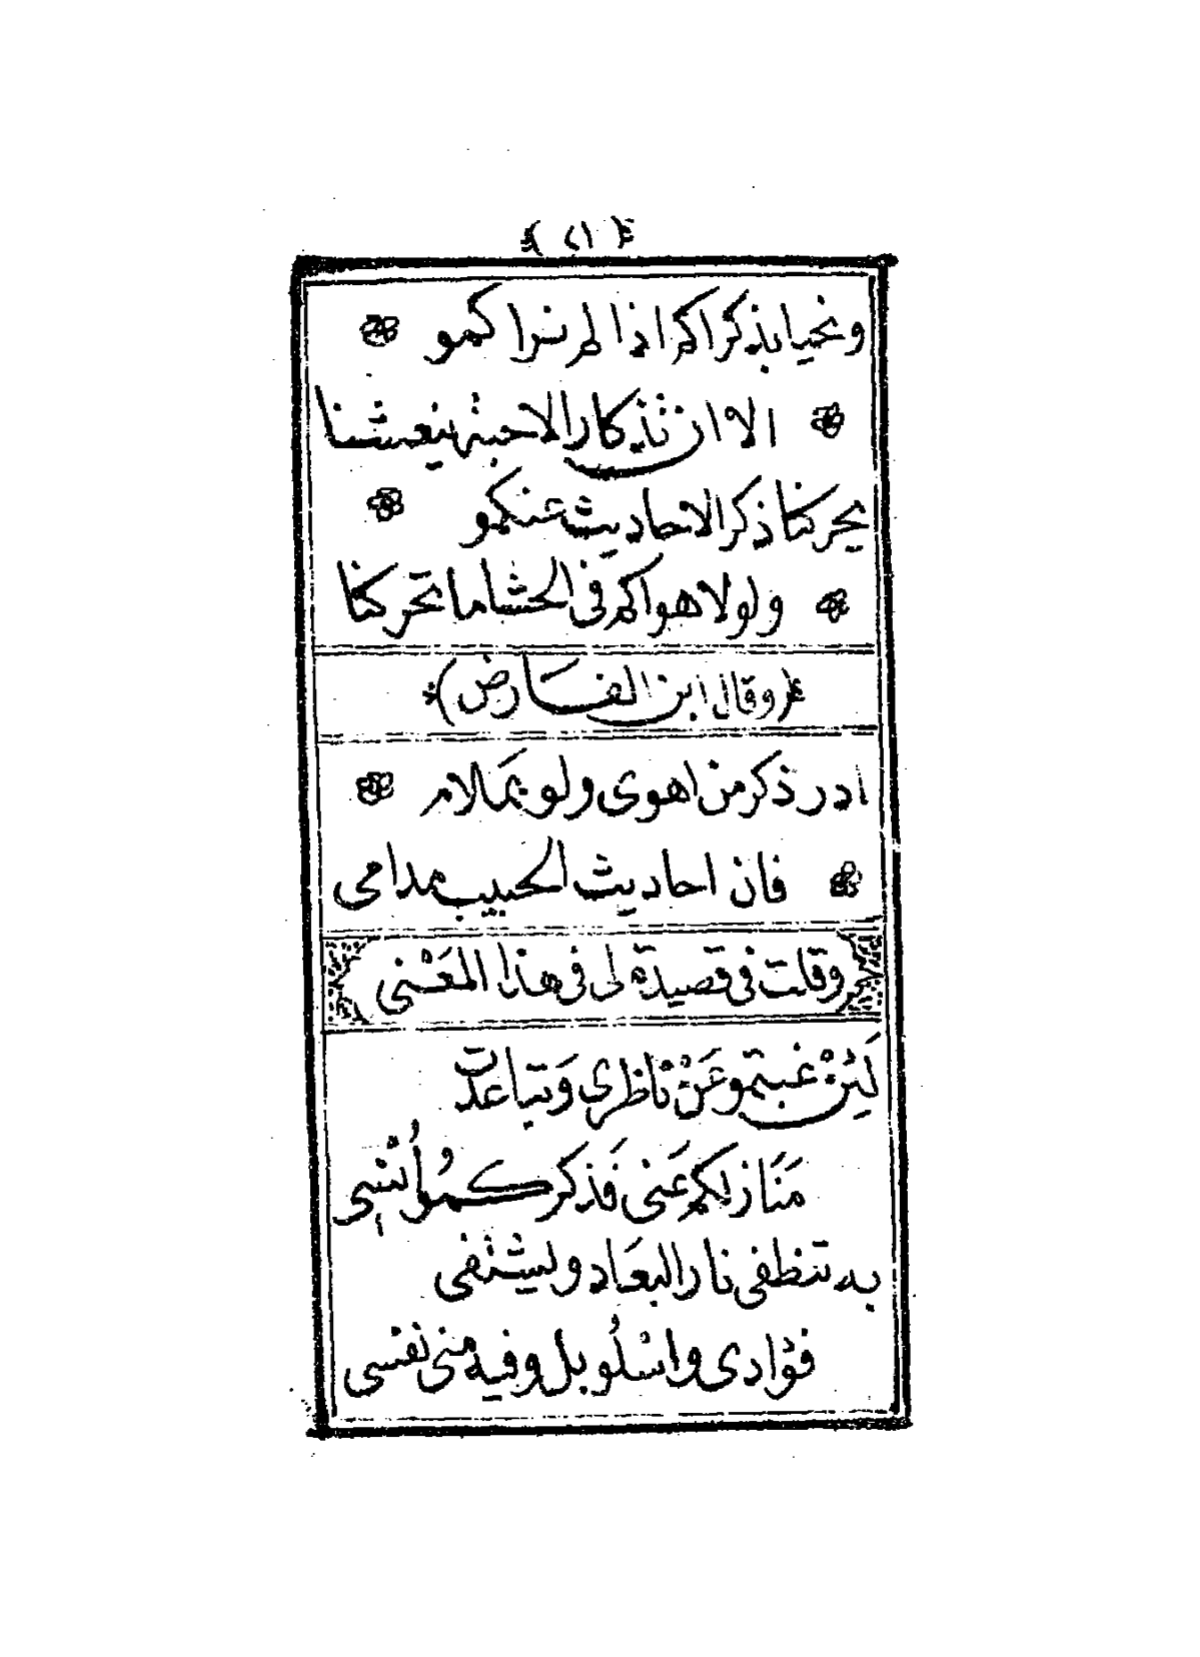 (١٢)
ونحيا بذكراكم اذا لم نراكمو
الا ان تذكار الاحبة ينعشنا
يحركنا ذكر الاحاديث عنكمو
ولولا هواكم فى الحشا ما تحركنا
(وقال ابن الفارض)
ادر ذكر من اهوى ولو بملام
فان احاديث الحبيب مدامى
وقلت فى قصيدة لى فى هذا المَعْنى
لَئِنْ غبتمو عَنْ ناظرى وَتباعدت
مَنَازلكم عَنى فَذكركمُو أُنْسِى
به تنطفى نار البعَاد ويشتفى
فؤادى واسْلُو بل وفيه منى نفسى